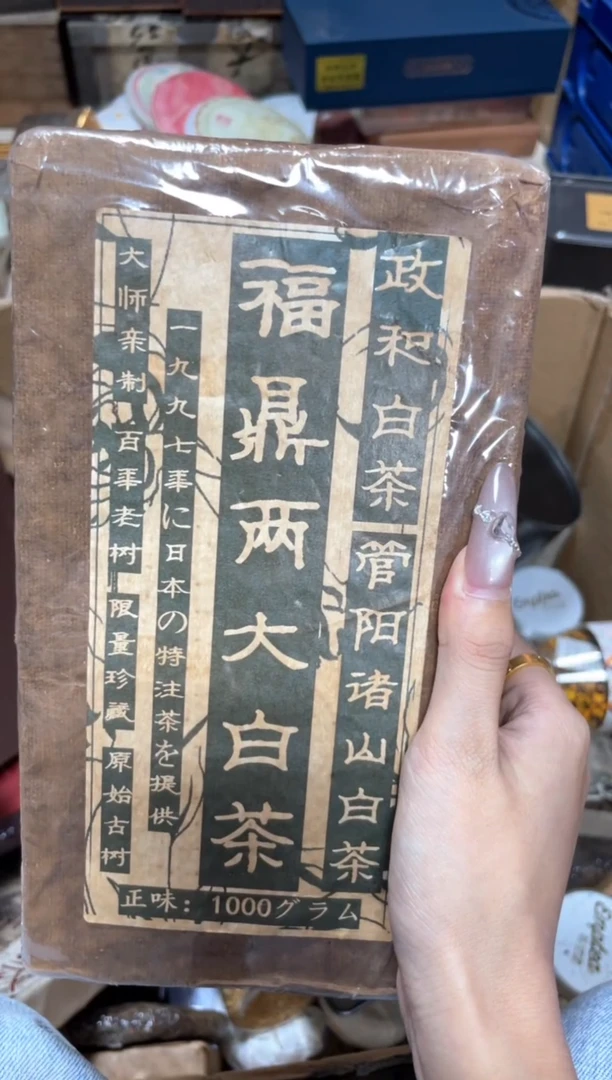 政和白茶 管阳诸山白茶
福鼎两大白茶
一九九七年に日本の特注茶を提供
大师亲制 百年老树 限量珍藏 原始古树
正味：1000グラム